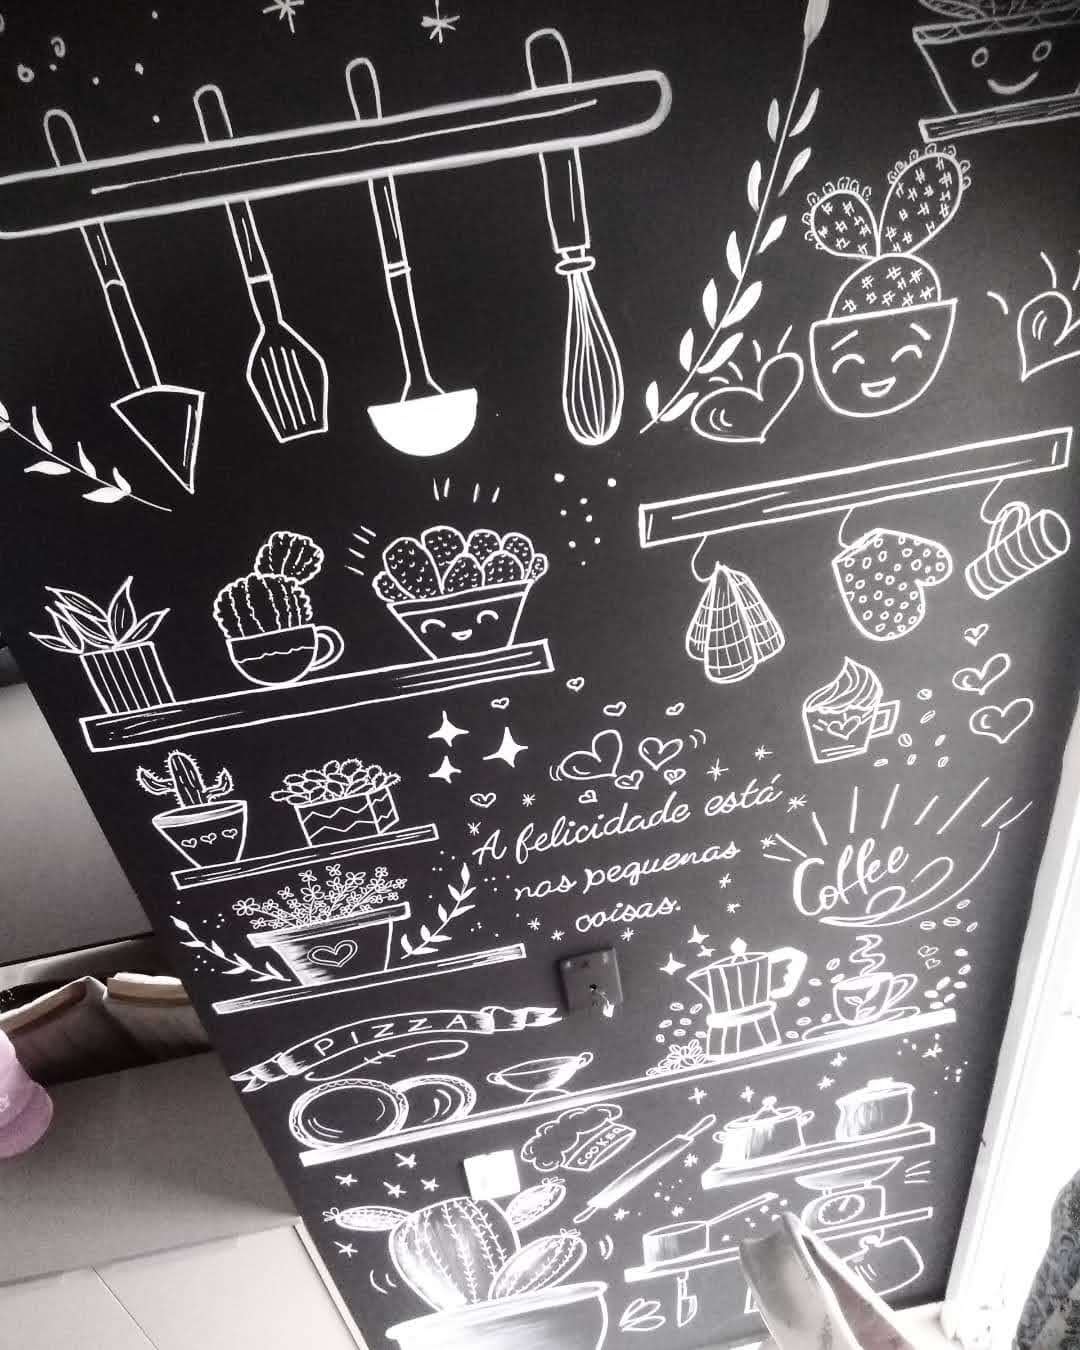 A felicidade está
nas pequenas
coisas.
Coffee
PIZZA
COOKER